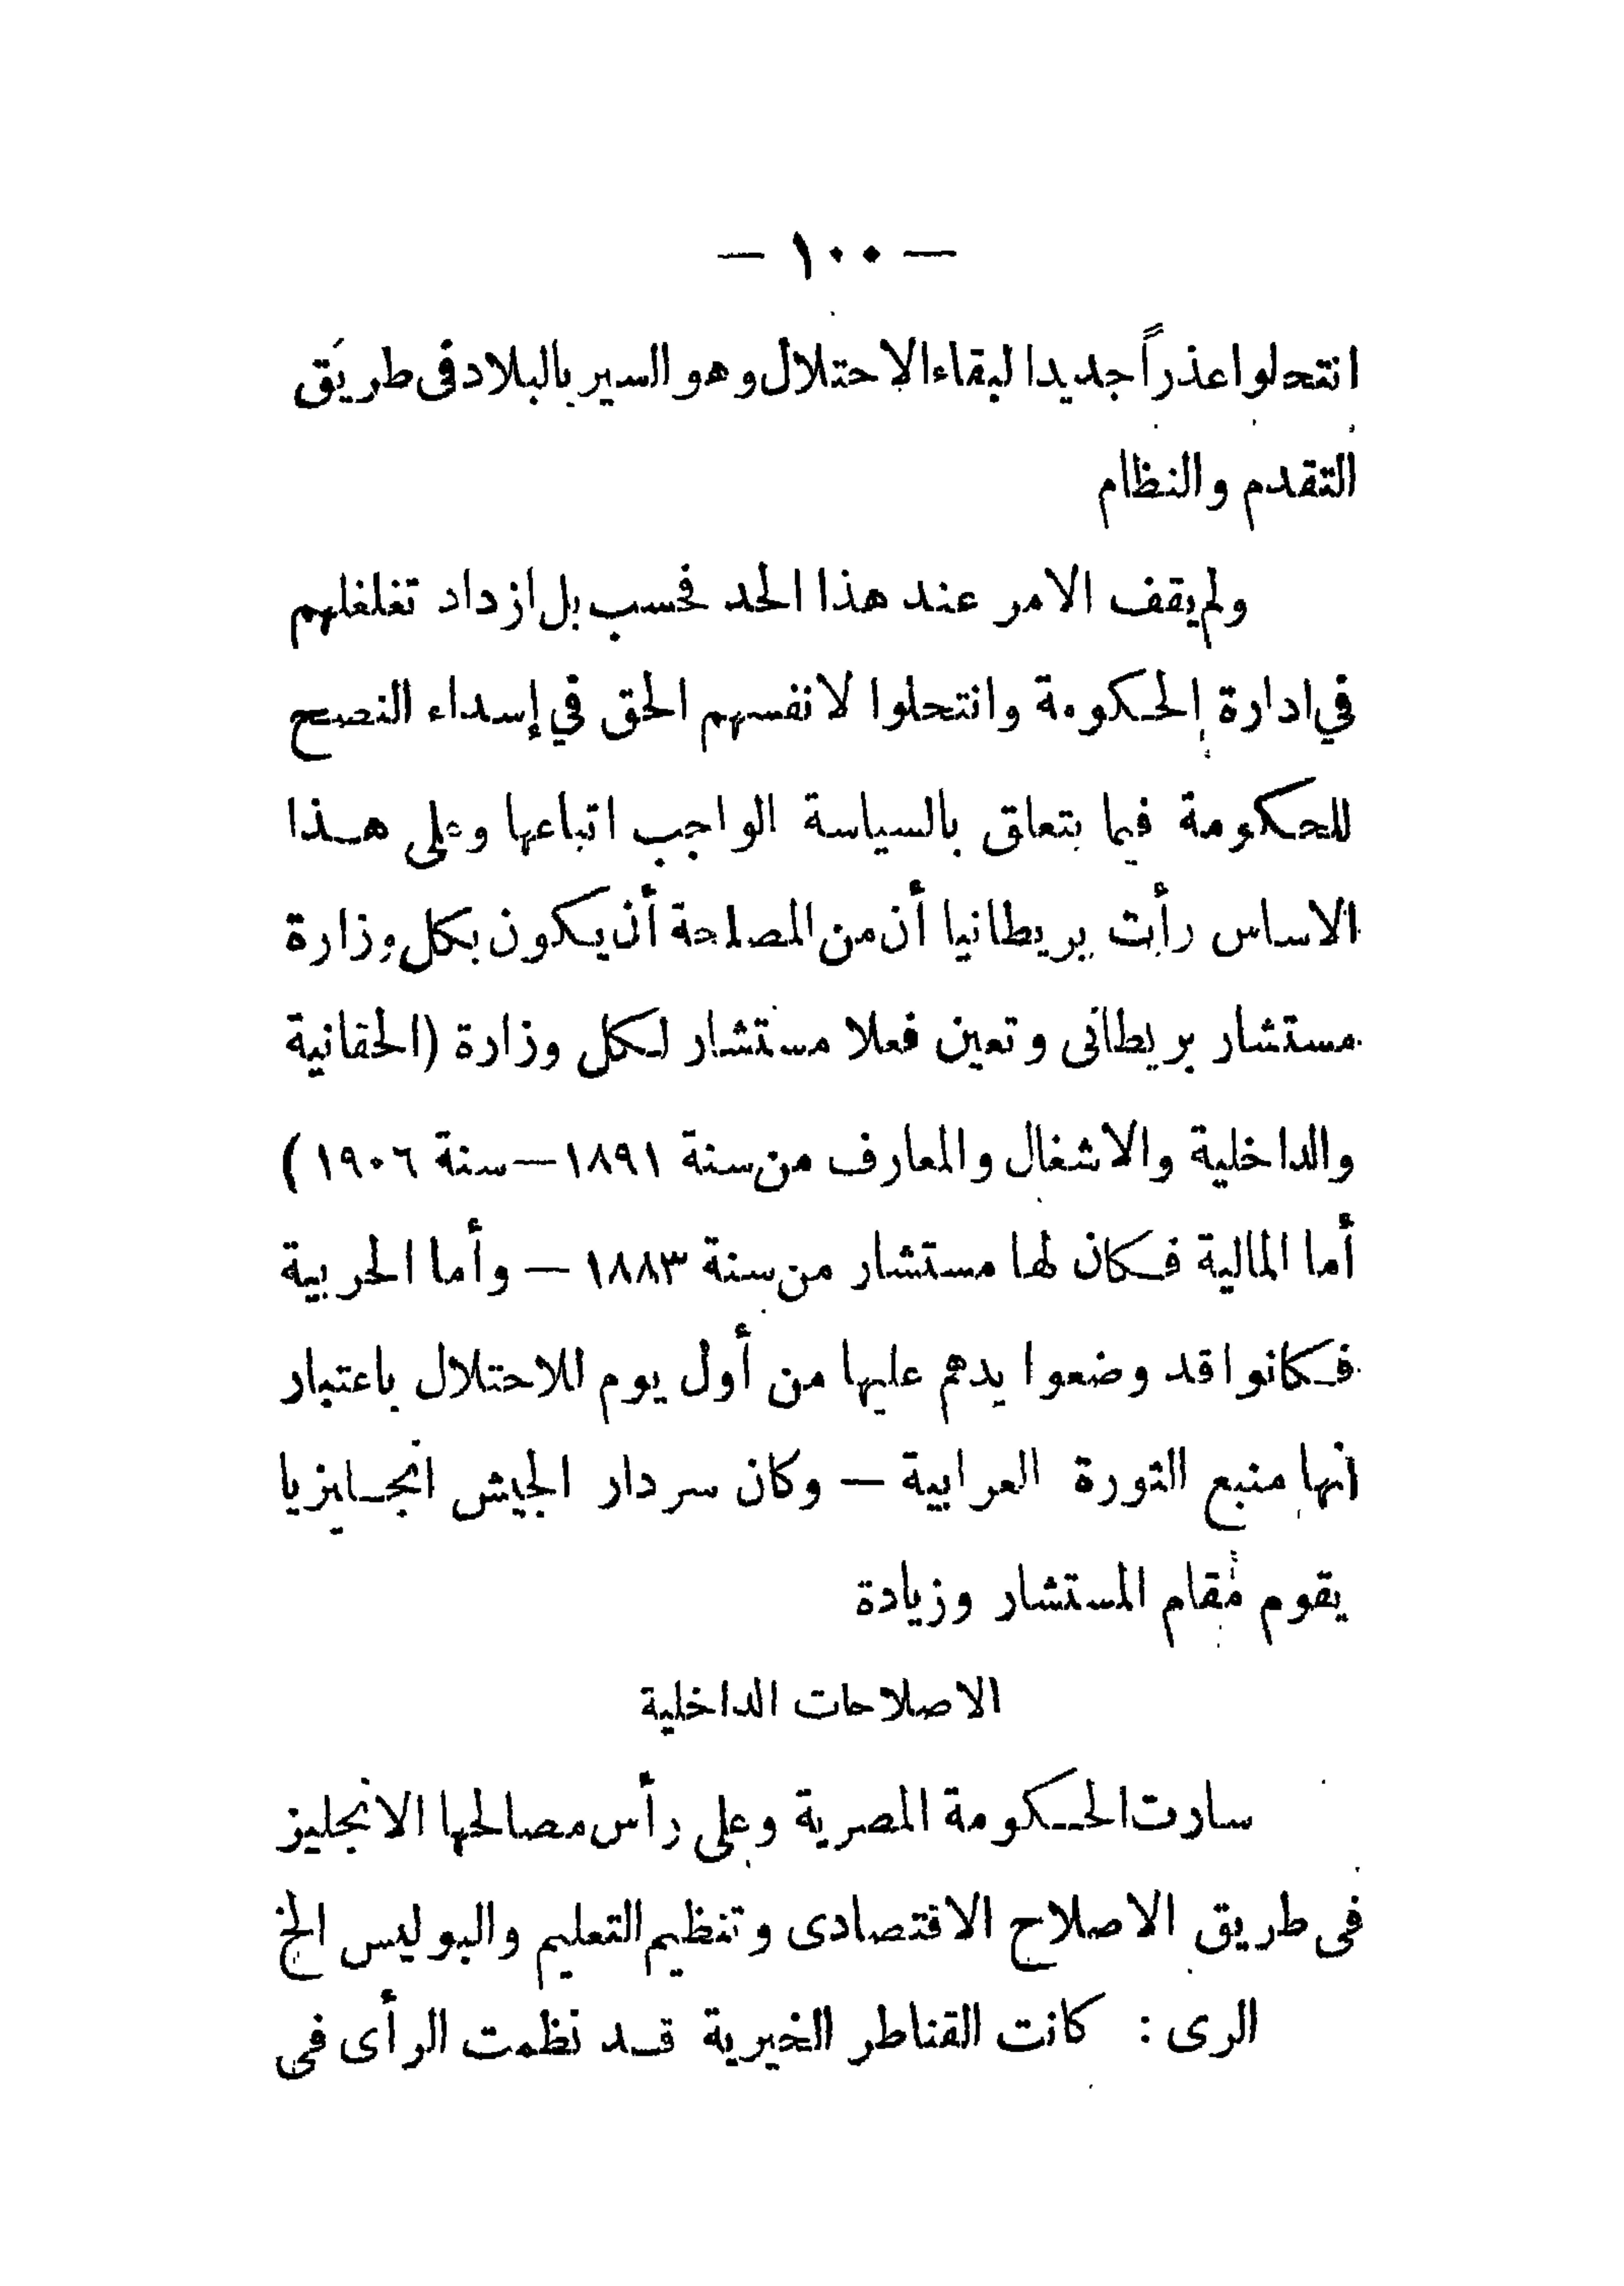 — ١٠٠ —
انتحلوا عذراً جديدا لبقاء الاحتلال وهو السير بالبلاد فى طريق
التقدم والنظام
ولم يقف الامر عند هذا الحد فحسب بل ازداد تغلغلهم
في ادارة الحكومة وانتحلوا لانفسهم الحق في إسداء النصح
للحكومة فيما يتعلق بالسياسة الواجب اتباعها وعلى هذا
الاساس رأت بريطانيا أن من المصلحة أن يكون بكل وزارة
مستشار بريطانى وتعين فعلا مستشار لكل وزارة (الحقانية
والداخلية والاشغال والمعارف من سنة ١٨٩١ — سنة ١٩٠٦ )
أما المالية فكان لها مستشار من سنة ١٨٨٣ — وأما الحربية
فكانوا قد وضعوا يدهم عليها من أول يوم للاحتلال باعتبار
أنها منبع الثورة العرابية — وكان سردار الجيش انجليزيا
يقوم مقام المستشار وزيادة
الاصلاحات الداخلية
سارت الحكومة المصرية وعلى رأس مصالحها الانجليز
فى طريق الاصلاح الاقتصادى وتنظيم التعليم والبوليس الخ
الرى : كانت القناطر الخيرية قد نظمت الرأى فى